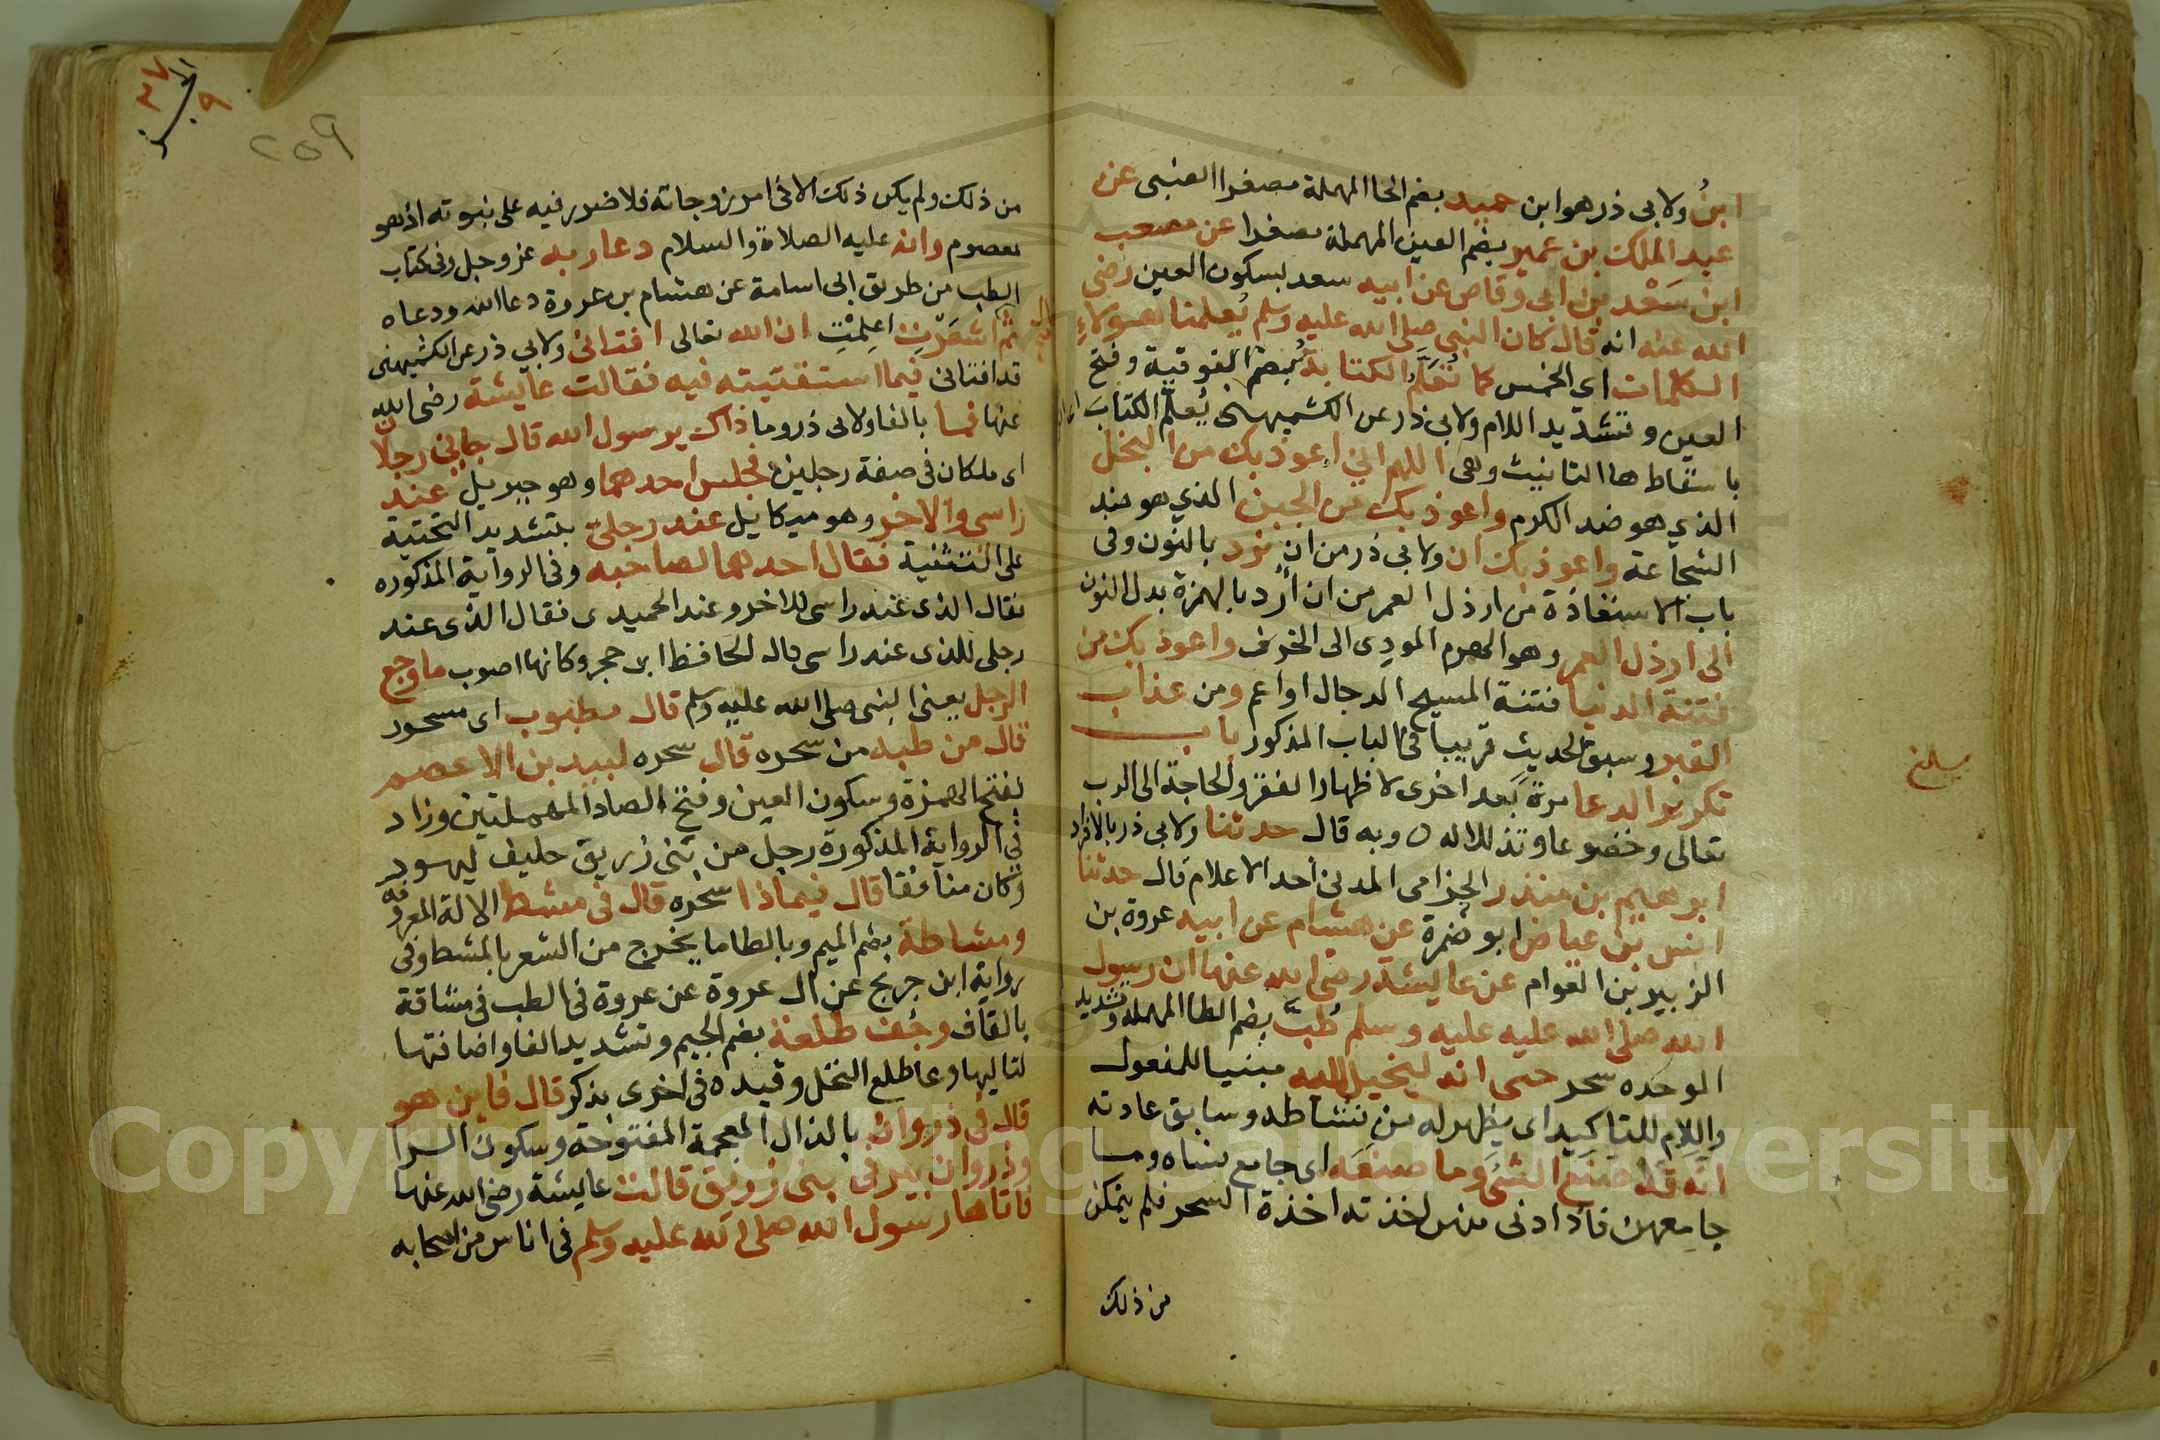 ابنُ ولابى ذر هو ابن حميد بضم الحا المهملة مصغرا الضبى عن
عبد الملك بن عمير بضم العين المهملة مصغرا عن مصعب
ابن سَعْد بن ابى وقاص عن ابيه سعد بسكون العين رضى
الله عنه انه قال كان النبى صلى الله عليه وسلم يُعلمنا هولاء
الكلمات اى الخمس كما تُعَلَّمُ الكتابة بضم الفوقية وفتح
العين وتشديد اللام ولابى ذر عن الكشميهنى يُعلّم الكتابَ
باسقاط ها التانيث وهى اللهم انى اعوذ بك من البخل
الذي هو ضد الكرم واعوذ بك من الجبن الذي هو ضد
الشجاعة واعوذ بك ان ولابي ذر من ان نُرد بالنون وفى
باب الاستعاذة من ارذل العمر من ان أُرد بالهمزة بدل النون
الى ارذل العمر وهو الهرم المودِى الى الخرف واعوذ بك من
فتنة الدنيا فتنة المسيح الدجال او اعم ومن عذاب
القبر وسبق الحديث قريبا فى الباب المذكور باب
تكرير الدعا مرة بَعد اخرى لاظهار الفقر والحاجة الى الرب
تعالى وخضوعا وتذللا له ٥ وبه قال حدثنا ولابي ذر بالافراد
ابرهيم بن منذر الحزامى المدنى احد الاعلام قال حدثنا
انس بن عياض ابو ضمرة عن هشام عن ابيه عروة بن
الزبير بن العوام عن عايشة رضى الله عنها ان رسول
الله صلى الله عليه عليه وسلم طُبَّ بضم الطا المهملة وتشديد
الموحده سحر حتى انه ليخيل اليه مبنيا للمفعول
واللام للتاكيد اى يظهر له من نشاطه وسابق عادته
انه قد صنع الشىَ وما صنعَه اى جامع نساه وما
جامعهن فاذا دنى منهن اخذته اخذة السحر فلم يتمكن
من ذلك
٢٥٩
من ذلك ولم يكن ذلك الا فى امر زوجاته فلا ضرر فيه على نبوته اذ هو
معصوم وانه عليه الصلاة والسلام دعا ربه عز وجل وفى كتاب
الطب من طريق ابى اسامة عن هشام بن عروة دعا الله ودعاه
ثم اشعَرْتِ اعلِمْتِ ان الله تعالى افتانى ولابي ذر عن الكشميهنى
قد افتانى فيما استفتيته فيه فقالت عايشة رضى الله
عنها فما بالفا ولابى ذر وما ذاك يرسول الله قال جانى رجلان
اى ملكان فى صفة رجلين فجلس احدهما وهو جبريل عند
راسى والاخر وهو ميكايل عند رجلىّ بتشديد التحتية
على التثنية فقال احدهما لصاحبه وفى الرواية المذكوره
فقال الذى عند راسى للاخر وعند الحميدى فقال الذى عند
رجلى للذى عند راسى قال الحافظ ابن حجر وكانها اصوب ما وجع
الرجل يعنى النبى صلى الله عليه وسلم قال مطبوب اى مسحور
قال من طبه من سحره قال سحره لبيد بن الاعصم
بفتح الهمزة وسكون العين وفتح الصاد المهملتين وزاد
فى الرواية المذكورة رجل من بنى زريق حليف ليهود
وكان منافقا قال فيماذا سحره قال فى مشط الالة المعروفة
ومشاطة بضم الميم وبالطا ما يخرج من الشعر بالمشط وفى
رواية ابن جريج عن ال عروة عن عروة فى الطب فى مشاقة
بالقاف وجُف طلعة بضم الجيم وتشديد الفا واضافتها
لتاليها وعا طلع النخل وقيده فى اخرى بذكر قال فاين هو
قال فى ذروان بالذال المعجمة المفتوحة وسكون الرا
وذروان بير فى بنى زريق قالت عايشة رضى الله عنها
فاتاها رسول الله صلى الله عليه وسلم فى اناس من اصحابه
Copyright © King Saud University